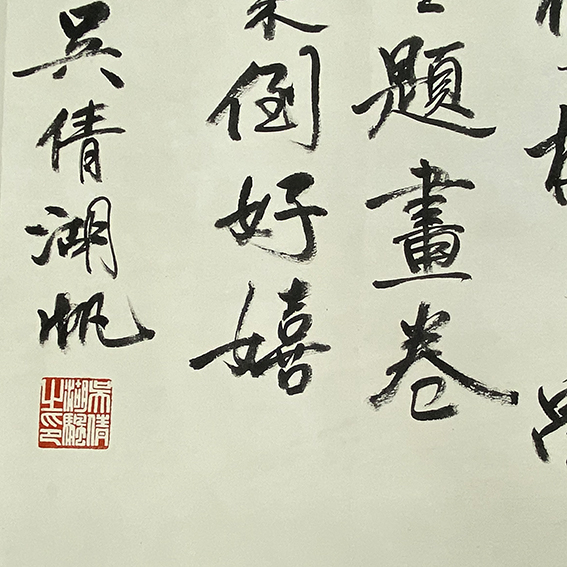 題畫卷
倒好嬉
吳倩湖帆
吳倩湖驫之印